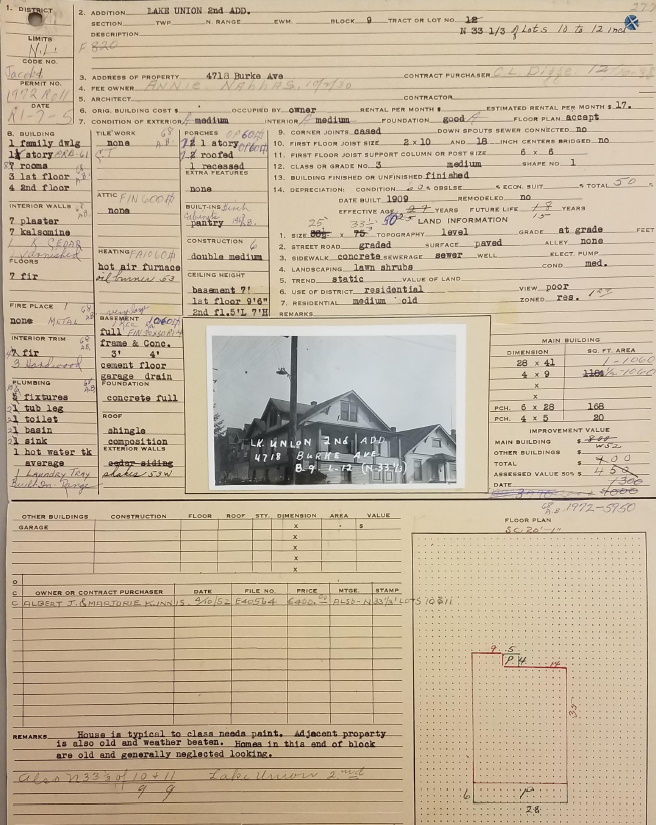 1. DISTRICT
LIMITS
N.L.
CODE NO.
PERMIT NO.
1972 Roll
DATE
2. ADDITION LAKE UNION 2nd ADD.
SECTION TWP N. RANGE EWM. BLOCK 9 TRACT OR LOT NO. 12
DESCRIPTION N 33 1/3 Lots 10 to 12 incl
F 820
3. ADDRESS OF PROPERTY 4718 Burke Ave CONTRACT PURCHASER
4. FEE OWNER ANNIE
5. ARCHITECT CONTRACTOR
6. ORIG. BUILDING COST $ OCCUPIED BY owner RENTAL PER MONTH $ ESTIMATED RENTAL PER MONTH $ 17.
7. CONDITION OF EXTERIOR medium INTERIOR medium FOUNDATION good FLOOR PLAN accept
8. BUILDING
1 family dwlg
1½ story
7 rooms
3 1st floor
4 2nd floor
INTERIOR WALLS
7 plaster
7 kalsomine
CEDAR
Varnished
FLOORS
7 fir
FIRE PLACE
none METAL
INTERIOR TRIM
7 fir
3 Hardwood
PLUMBING
5 fixtures
1 tub leg
1 toilet
1 basin
1 sink
1 hot water tk
average
1 LAUNDRY TRAY
Built-in Range
TILE WORK
none
ATTIC FIN
none
HEATING
hot air furnace
oil burner 53
BASEMENT
full
frame & Conc.
3' 4'
cement floor
garage drain
FOUNDATION
concrete full
ROOF
shingle
composition
EXTERIOR WALLS
cedar siding
shakes 53
PORCHES
1 story
2 roofed
1 recessed
EXTRA FEATURES
none
BUILT-INS Birch
Cabinets
pantry
CONSTRUCTION
double medium
CEILING HEIGHT
basement 7'
1st floor 9'6"
2nd fl.5'L 7'H
9. CORNER JOINTS cased DOWN SPOUTS SEWER CONNECTED no
10. FIRST FLOOR JOIST SIZE 2 x 10 AND 18 INCH CENTERS BRIDGED no
11. FIRST FLOOR JOIST SUPPORT COLUMN OR POST SIZE 6 x 6
12. CLASS OR GRADE NO. 3 medium SHAPE NO. 1
13. BUILDING FINISHED OR UNFINISHED finished
14. DEPRECIATION: CONDITION % OBSLSE % ECON. SUIT % TOTAL 50 %
DATE BUILT 1909 REMODELED no
EFFECTIVE AGE 27 YEARS FUTURE LIFE YEARS
15
LAND INFORMATION
1. SIZE x 75 TOPOGRAPHY level GRADE at grade FEET
2. STREET ROAD graded SURFACE paved ALLEY none
3. SIDEWALK concrete SEWERAGE sewer WELL ELECT. PUMP
4. LANDSCAPING lawn shrubs COND. med.
5. TREND static VALUE OF LAND
6. USE OF DISTRICT residential VIEW poor
7. RESIDENTIAL medium old ZONED res.
REMARKS
LK. UNION 2nd ADD
4718 BURKE AVE
B.9 L-12 (N-33⅓)
MAIN BUILDING
DIMENSION SQ. FT. AREA
28 x 41 1-1060
4 x 9 1184 ½-1060
x
x
PCH. 6 x 28 168
PCH. 4 x 5 20
IMPROVEMENT VALUE
MAIN BUILDING $
OTHER BUILDINGS $
TOTAL $ 900
ASSESSED VALUE 50% $ 450
DATE 1300
1972-5950
OTHER BUILDINGS CONSTRUCTION FLOOR ROOF STY. DIMENSION AREA VALUE
GARAGE x $
x
x
x
x
O
C
C
OWNER OR CONTRACT PURCHASER DATE FILE NO. PRICE MTGE. STAMP
ALBERT J. & MARJORIE K. INNIS. 9/10/52 E40564 6400.00 ALSO - N 33⅓' LOTS 10 & 11
REMARKS House is typical to class needs paint. Adjacent property
is also old and weather beaten. Homes in this end of block
are old and generally neglected looking.
Also N 33⅓ of 10 + 11 Lake Union 2nd
9 9
FLOOR PLAN
SC. 20'-1"
9 5
P 4 14
35
6
28